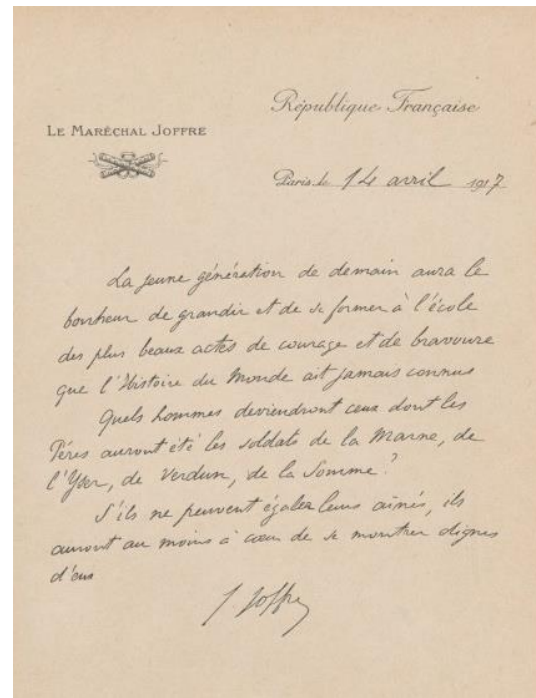 République Française
LE MARÉCHAL JOFFRE
Paris, le 14 avril 1917
La jeune génération de demain aura le
bonheur de grandir et de se former à l'école
des plus beaux actes de courage et de bravoure
que l'Histoire du Monde ait jamais connus
Quels hommes deviendront ceux dont les
Pères auront été les soldats de la Marne, de
l'Yser, de Verdun, de la Somme ?
S'ils ne peuvent égaler leurs aînés, ils
auront au moins à cœur de se montrer dignes
d'eux
J Joffre